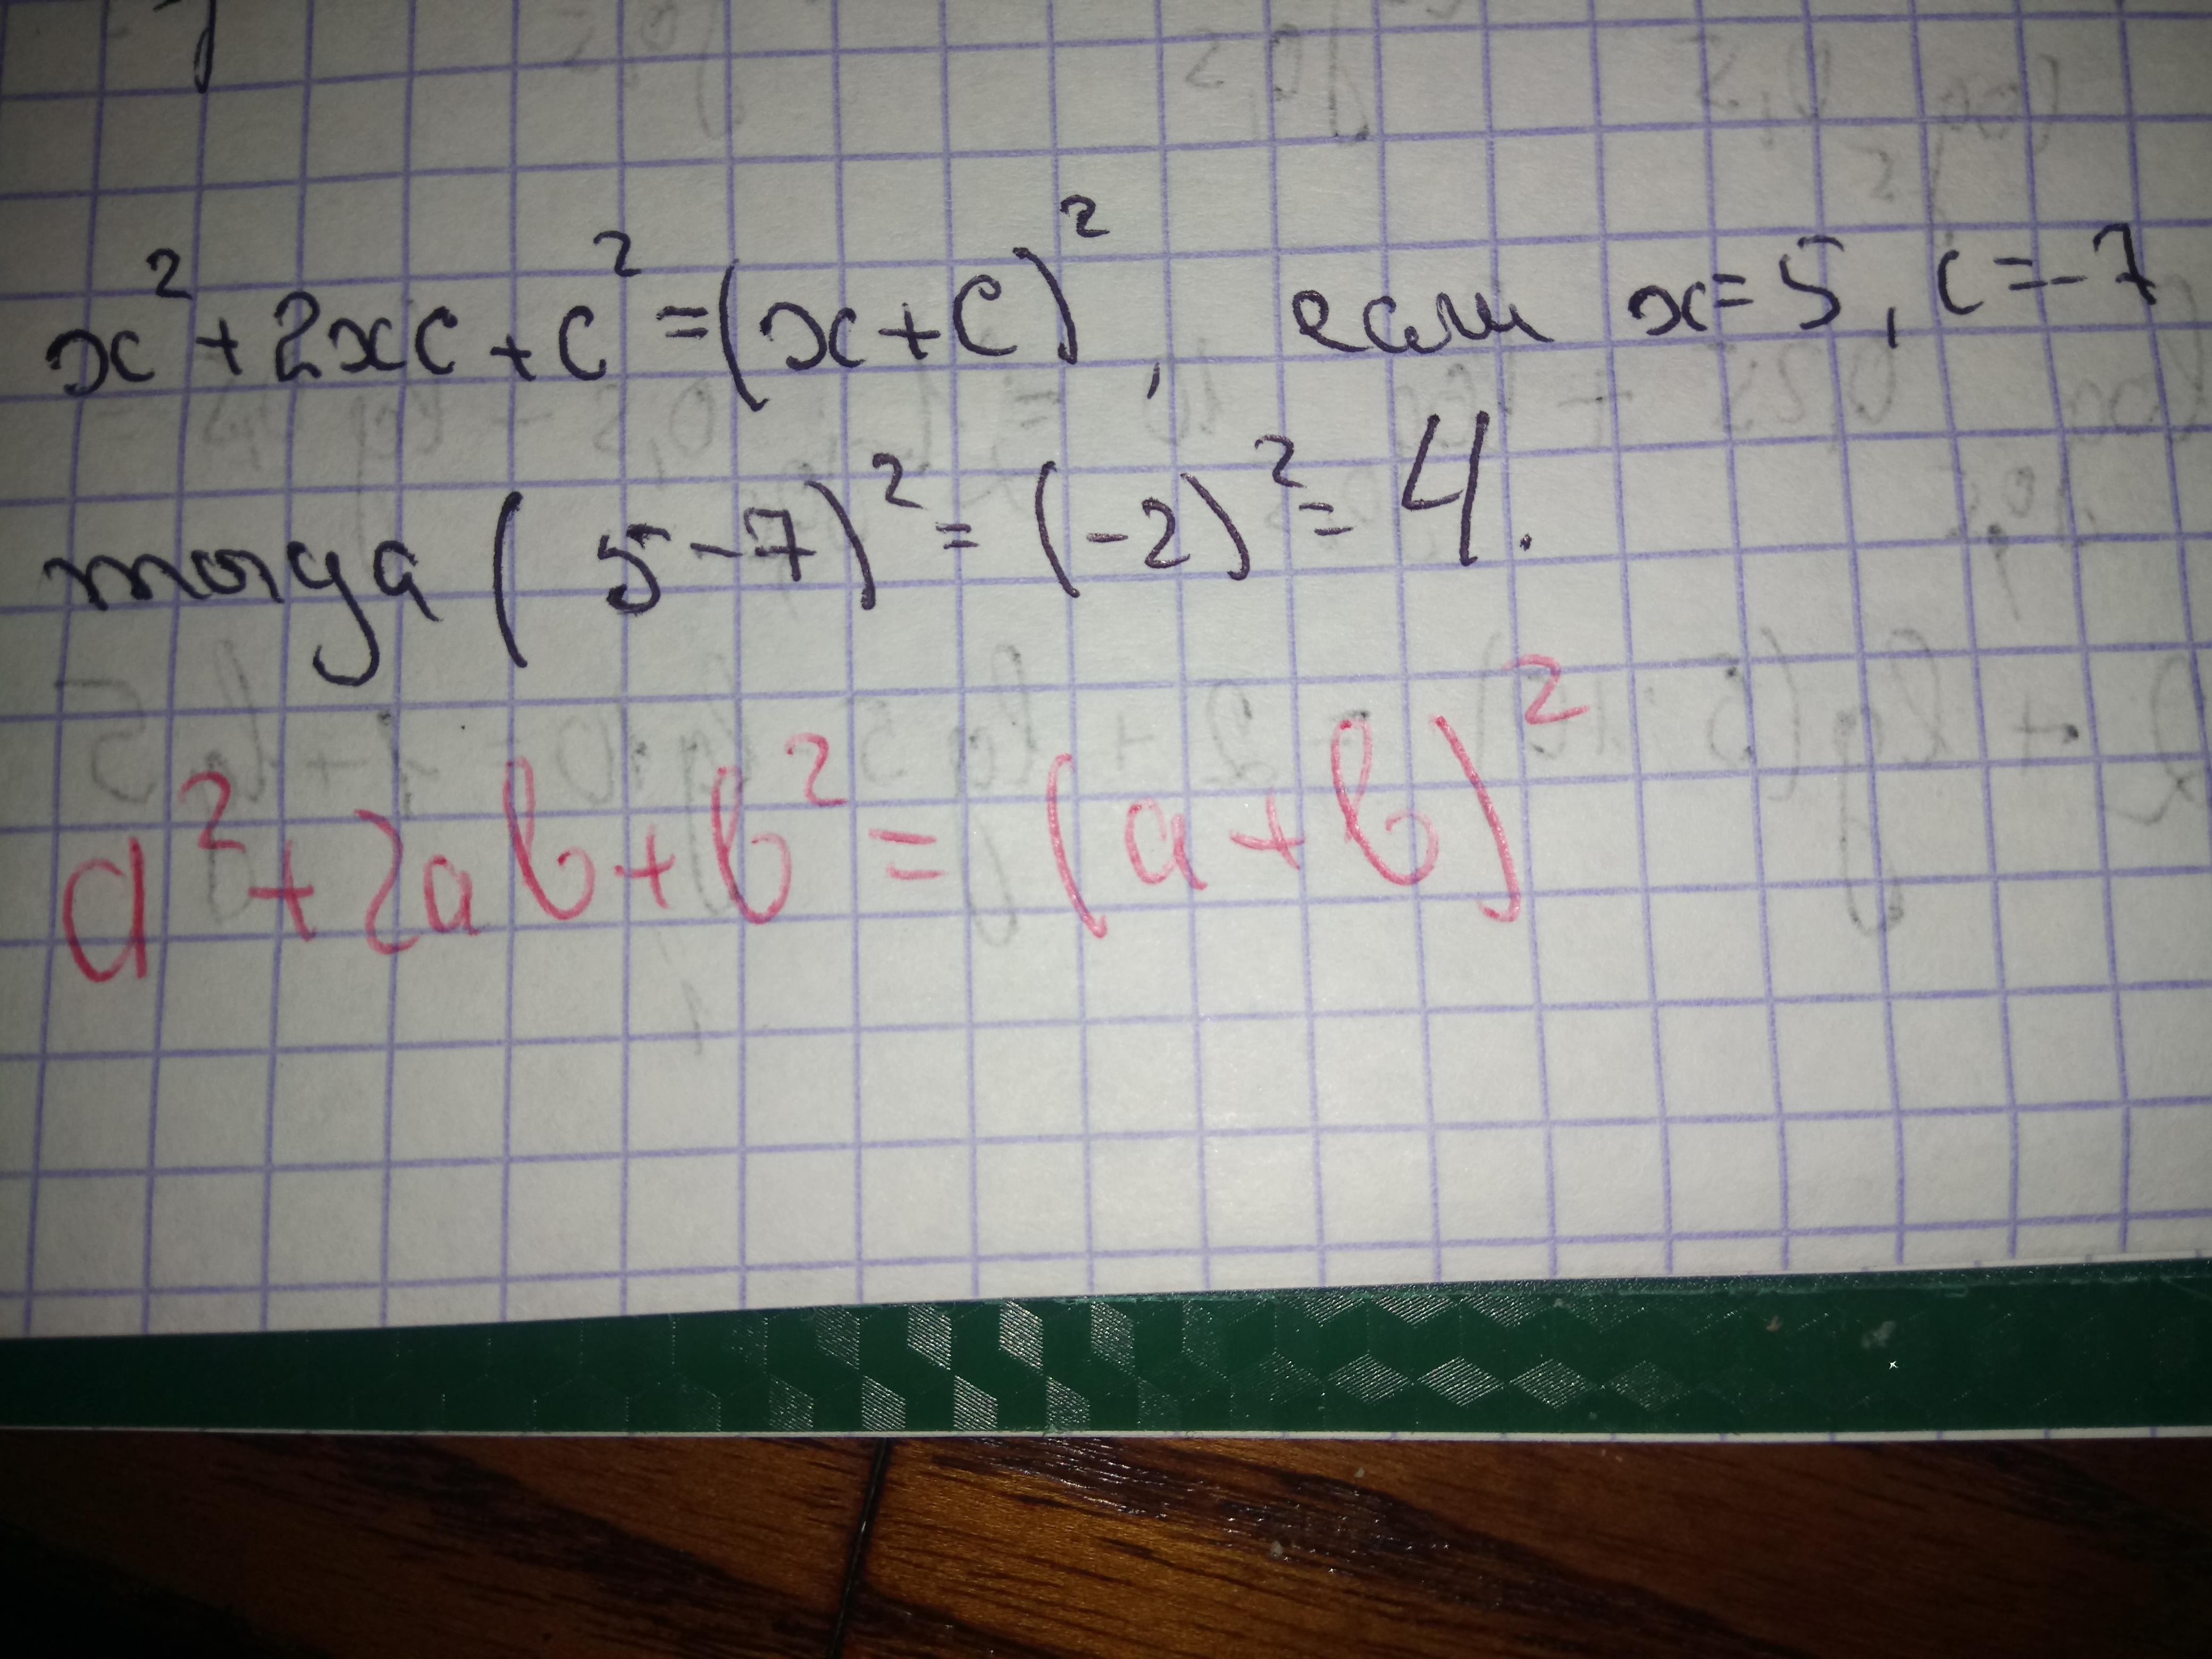 x² + 2xc + c² = (x + c)², если x = 5, c = -7
тогда (5 - 7)² = (-2)² = 4.
a² + 2ab + b² = (a + b)²